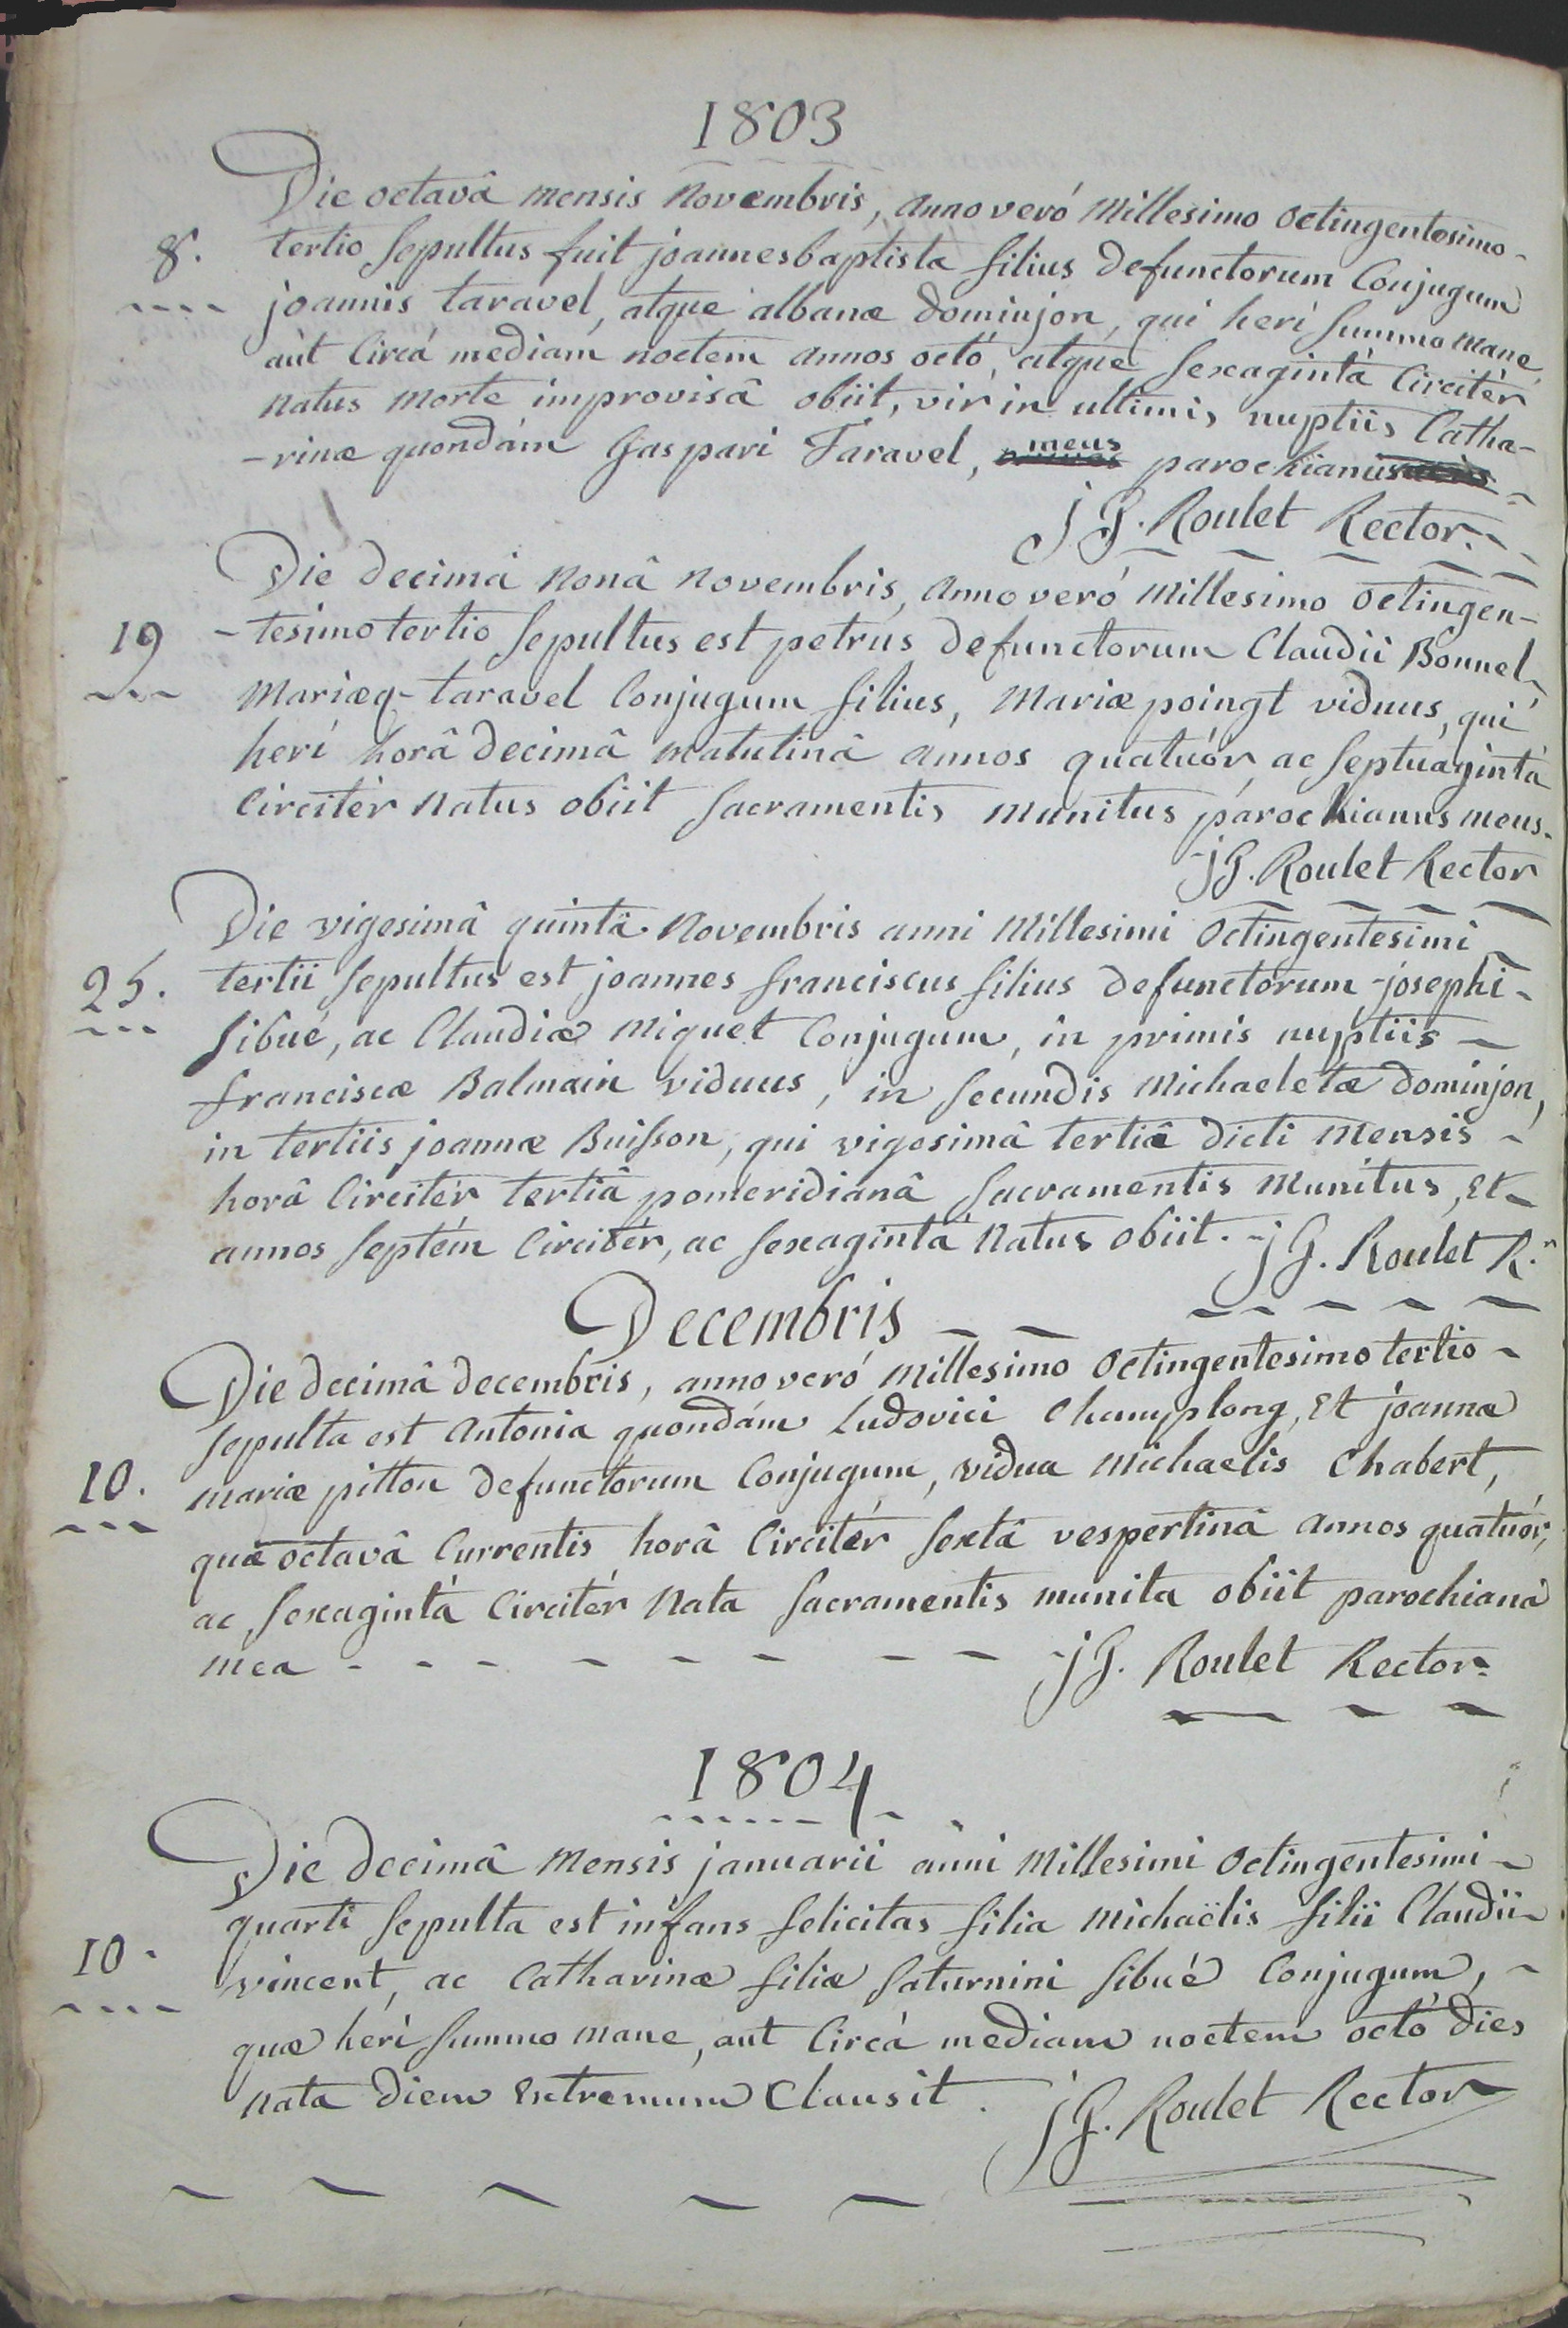 1803
Die octavâ mensis Novembris, anno veró Millesimo Octingentesimo-
8. tertio sepultus fuit joannesbaptista filius Defunctorum Conjugum
joannis taravel, atque albanæ Dominjon, qui herí summo mane,
aùt Circá mediam noctem annos octó, atque sexagintá Circitér
natus morte improvisâ obiit, vir in ultimis nuptiis Catha-
-rinæ quondám Gaspari Taravel, meus parochianus
j G. Roulet Rector.
Die decimâ nonâ novembris, anno veró Millesimo Octingen-
19 -tesimo tertio sepultus est petrus Defunctorum Claudii Bonnel,
Mariæq- taravel Conjugum filius, Mariæ poingt viduus, qui
herí horâ decimâ matutinâ annos quatuór, ac septuagintá
Circitér natus obiit sacramentis munitus parochianus meus.
jG. Roulet Rector
Die vigesimâ quintâ Novembris anni Millesimi Octingentesimi
25. tertii sepultus est joannes franciscus filius Defunctorum josephi
sibué, ac Claudiæ Miquet Conjugum, in primis nuptiis
franciscæ Balmain viduus, in secundis Michaeletæ Dominjon,
in tertiis joannæ Buisson, qui vigesimâ tertiâ dicti mensis
horâ Circitér tertiâ pomeridianâ sacramentis munitus, Et
annos septém Circitér, ac sexagintá Natus obiit. j G. Roulet R.r
Decembris
Die decimâ decembris, anno veró Millesimo Octingentesimo tertio
sepulta est Antonia quondám Ludovici Champlong, Et joannæ
10. mariæ pitton Defunctorum Conjugum, vidua Michaelis Chabert,
quæ octavâ Currentis horâ Circitér sextâ vespertinâ annos quatuór,
ac sexagintá Circitér Nata sacramentis munita obiit parochiana
mea - - - - - - - - - jG. Roulet Rector.
1804
Die decimâ Mensis januarii anni Millesimi Octingentesimi
quarti sepulta est infans felicitas filia Michaëlis filii Claudii
10. vincent, ac Catharinæ filiæ saturnini sibué Conjugum,
quæ herí summo mane, aut Circá mediam noctem octó dies
nata diem Extremum Clausit. j G. Roulet Rector